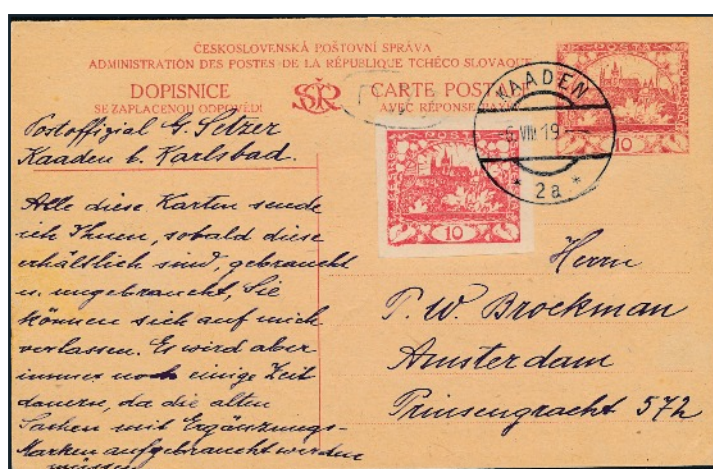 ČESKOSLOVENSKÁ POŠTOVNÍ SPRÁVA
ADMINISTRATION DES POSTES DE LA RÉPUBLIQUE TCHÉCO SLOVAQUE
DOPISNICE
SE ZAPLACENOU ODPOVĚDÍ
ČSR
CARTE POSTALE
AVEC RÉPONSE PAYÉE
KAADEN
-6.VIII.19-
* 2a *
POSTA
10
POSTA
10
Postoffizial G. Setzer
Kaaden b. Karlsbad.
Alle diese Karten sende
ich Ihnen, sobald diese
erhältlich sind, gebraucht
u. ungebraucht, Sie
können sich auf mich
verlassen. Es wird aber
immer noch einige Zeit
dauern, da die alten
Sachen mit Ergänzungs-
Marken aufgebraucht werden
müssen
Herrn
P. W. Brockman
Amsterdam
Prinsengracht 572